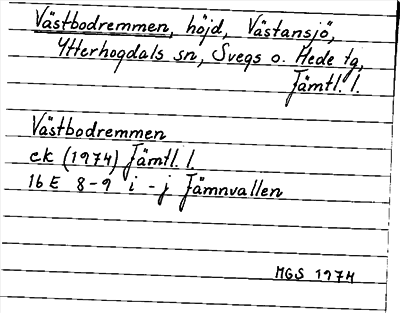 Västbodremmen, höjd, Västansjö,
Ytterhogdals sn, Svegs o. Hede tg,
Jämtl. l.
Västbodremmen
ek (1974) Jämtl. l.
16 E 8-9 i - j Jämnvallen
MGS 1974